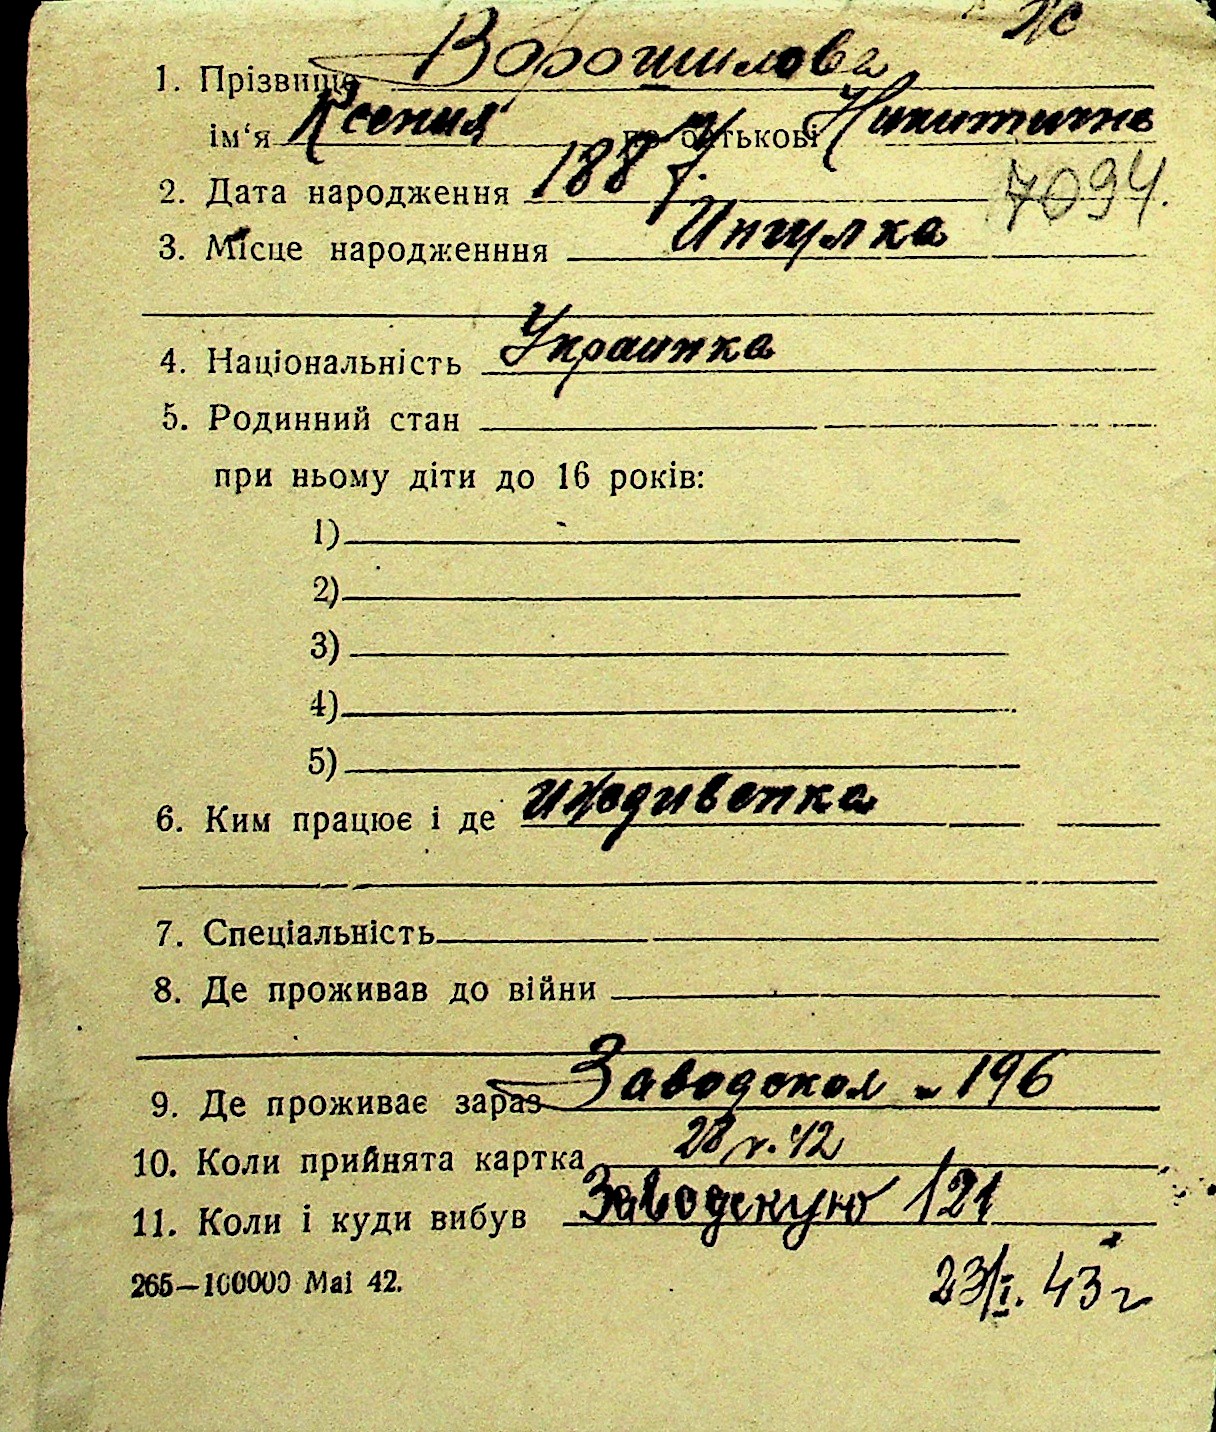 Ж
1. Прізвище Ворошилова
ім‘я Ксения по батькові Никитична
2. Дата народження 1887 г.
7094.
3. Місце народженння Ингулка
4. Національність Украинка
5. Родинний стан
при ньому діти до 16 років:
1)
2)
3)
4)
5)
6. Ким працює і де иждивенка
7. Спеціальність
8. Де проживав до війни
9. Де проживає зараз Заводская - 196
10. Коли прийнята картка 42
11. Коли і куди вибув Заводскую 121
265—100000 Mai 42.
23/I. 43 г